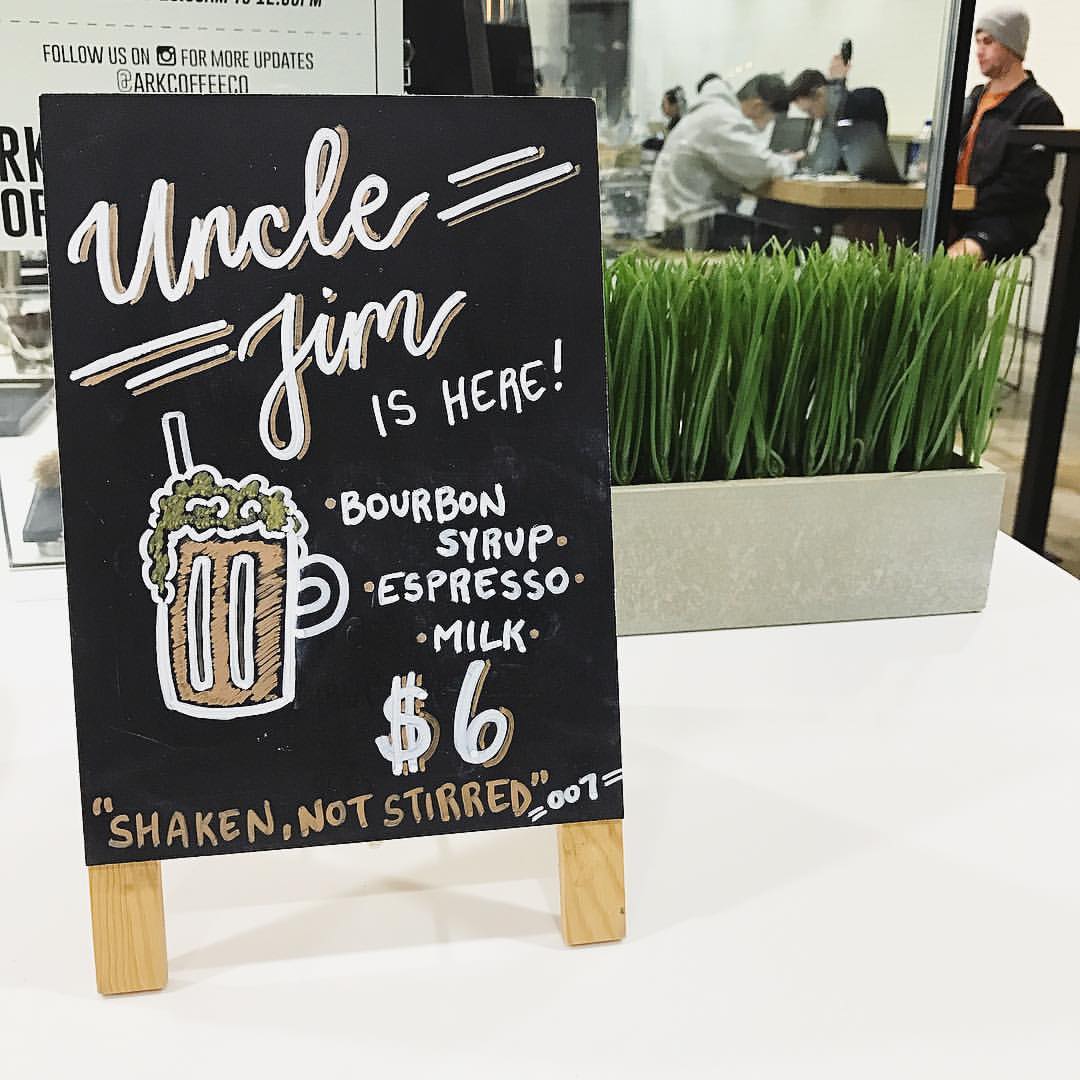 TO 12:00PM
FOLLOW US ON FOR MORE UPDATES
@ARKCOFFEECO
Uncle
Jim
IS HERE!
BOURBON
SYRUP
ESPRESSO
MILK
$6
"SHAKEN, NOT STIRRED" =007=